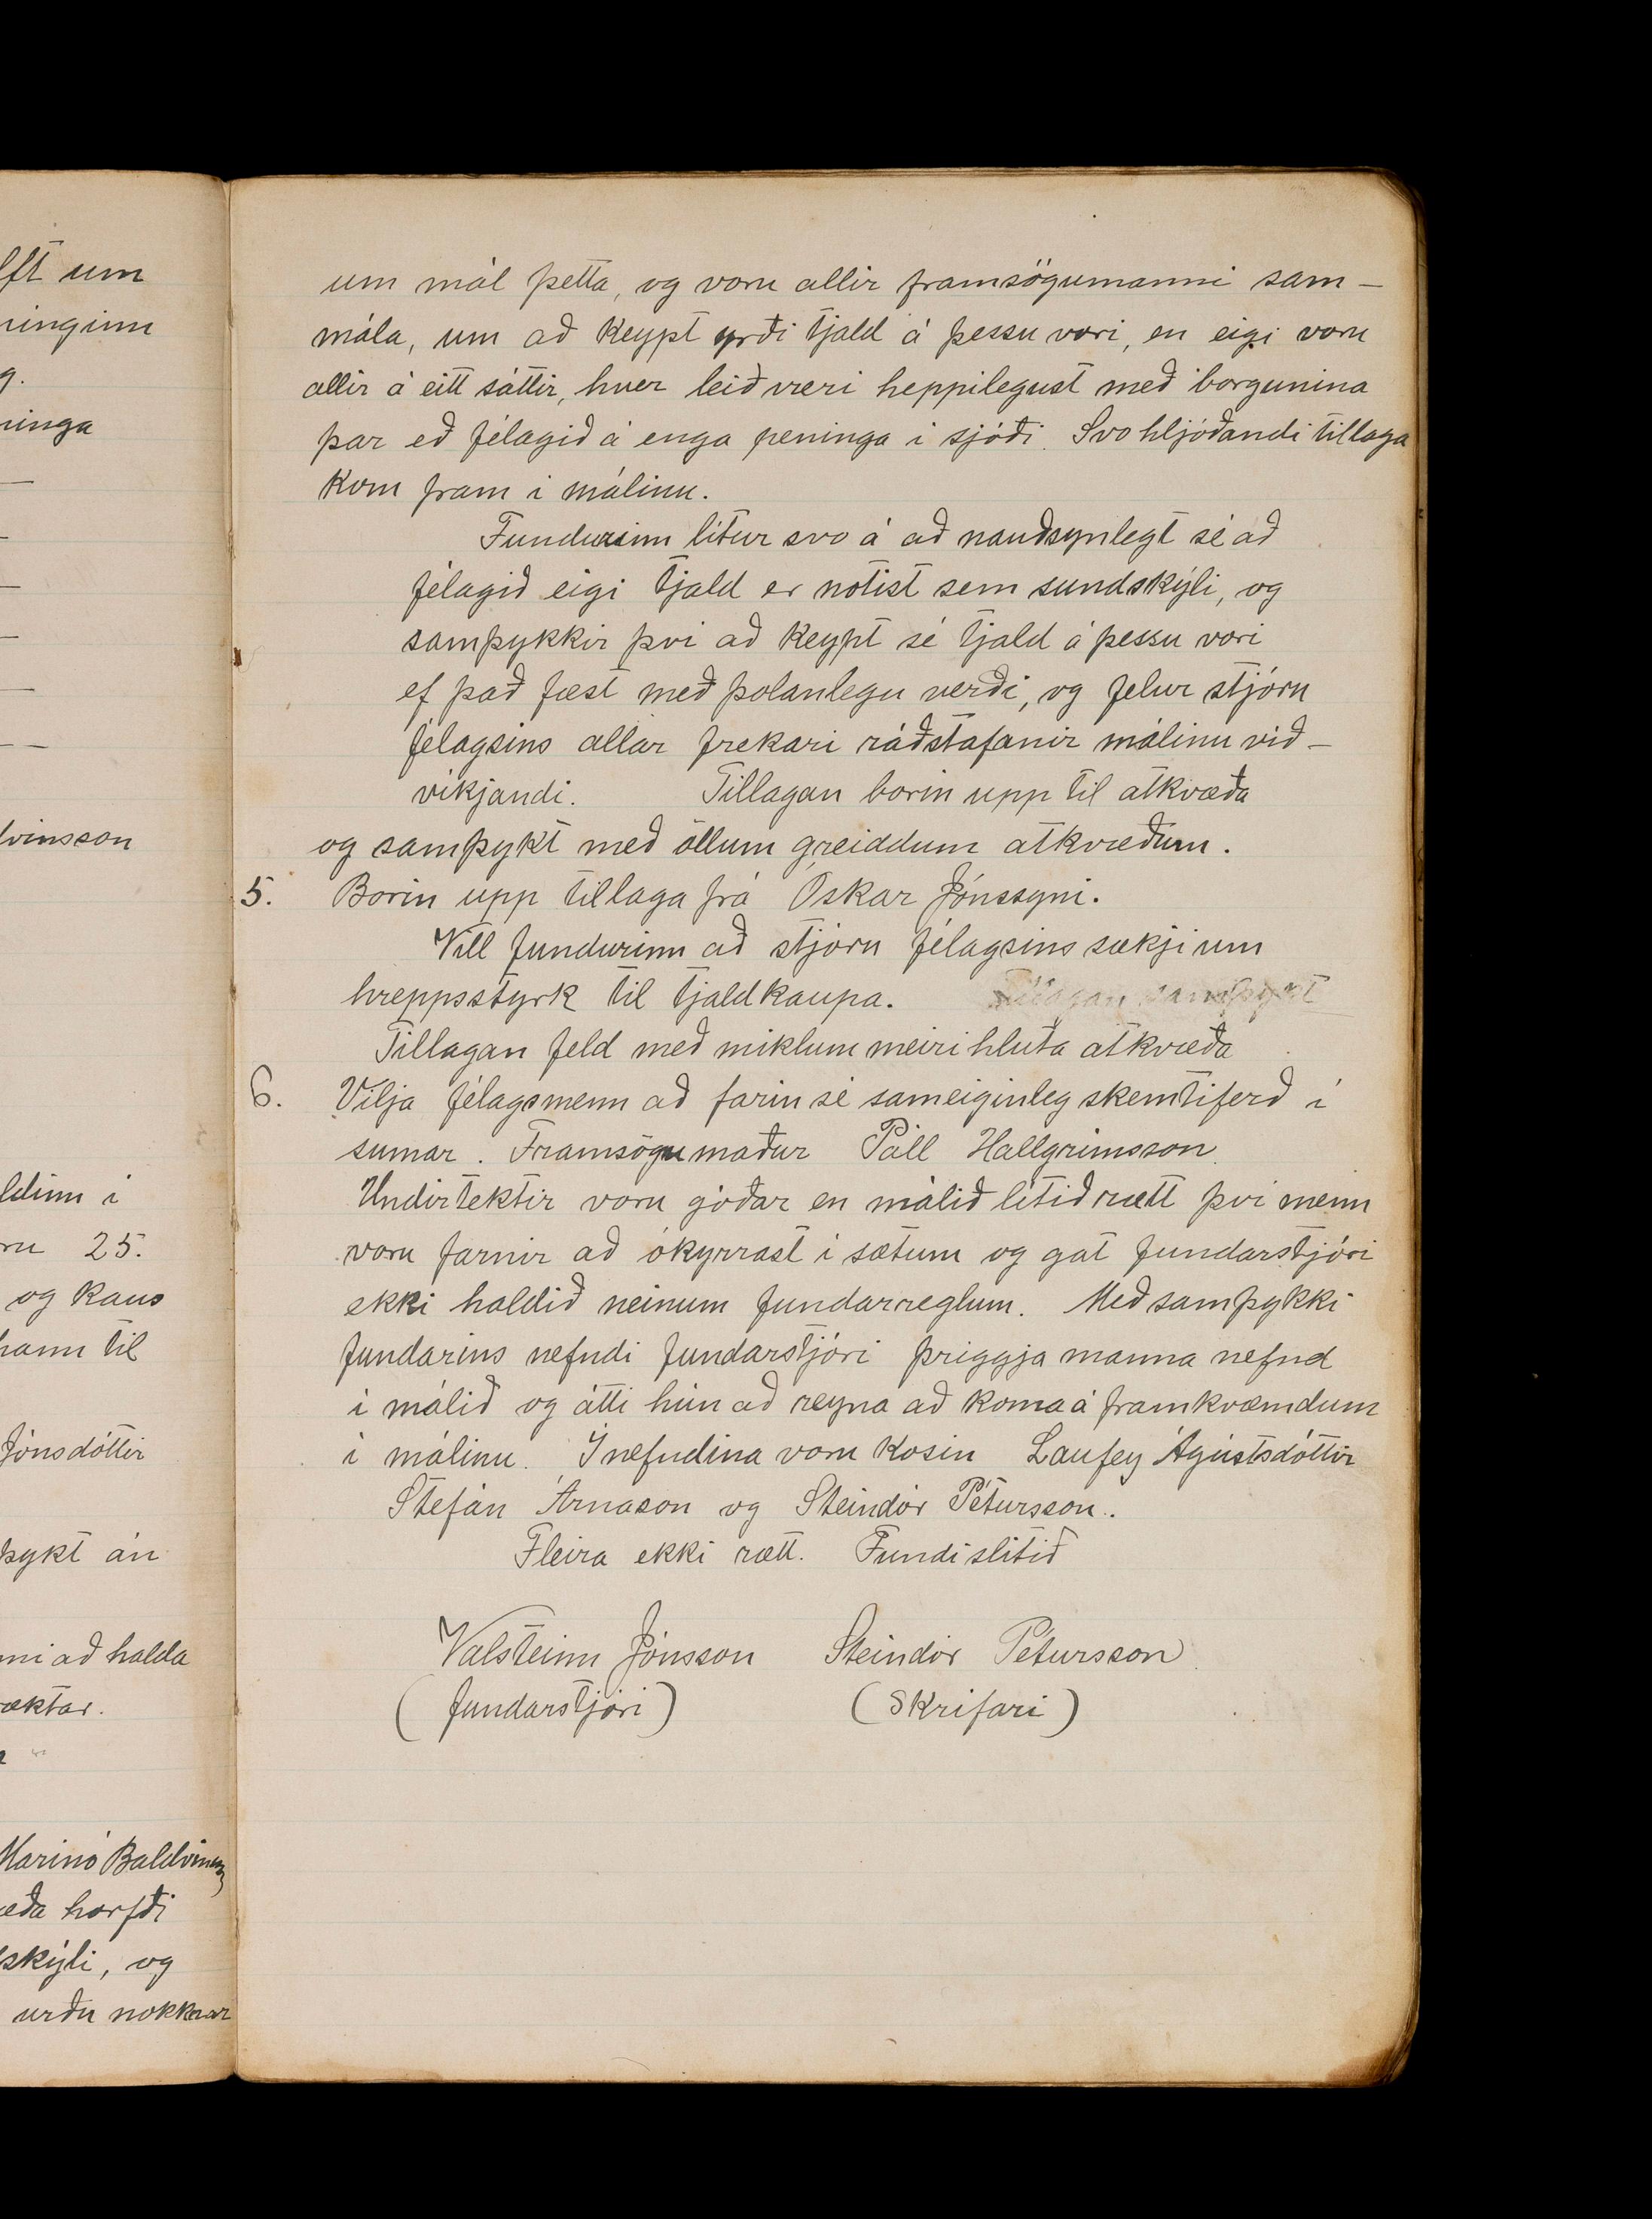 lft um
ninginn
g.
ninga
lvinsson
ldinn í
ru 25.
og kaus
hann til
Jónsdóttir
þykt án
nni að halda
ræktar.
Marinó Baldvinss
æða horfði
skýli, og
urðu nokkrar
um mál þetta, og voru allir framsögumanni sam-
mála, um að keypt yrði tjald á þessu vori, en eigi voru
allir á eitt sáttir, hver leið væri heppilegust með borgunina
þar eð félagið á enga peninga í sjóði. Svohljóðandi tillaga
kom fram í málinu.
Fundurinn lítur svo á að nauðsynlegt sé að
félagið eigi tjald er notist sem sundskýli, og
samþykkir því að keypt sé tjald á þessu vori
ef það fæst með þolanlegu verði, og felur stjórn
félagsins allar frekari ráðstafanir málinu við-
víkjandi. Tillagan borin upp til atkvæða
og samþykt með öllum greiddum atkvæðum.
5. Borin upp tillaga frá Óskar Jónssyni.
Vill fundurinn að stjórn félagsins sækji um
hreppsstyrk til tjaldkaupa. Tillagan samþykt
Tillagan feld með miklum meirihluta atkvæða
6. Vilja félagsmenn að farin sé sameiginleg skemtiferð í
sumar. Framsögumaður Páll Hallgrímsson
Undirtektir voru góðar en málið lítið rætt því menn
voru farnir að ókyrrast í sætum og gat fundarstjóri
ekki haldið neinum fundarreglum. Með samþykki
fundarins nefndi fundarstjóri þriggja manna nefnd
í málið og átti hún að reyna að koma á framkvæmdum
í málinu. Í nefndina voru kosin Laufey Ágústsdóttir
Stefán Árnason og Steindór Pétursson.
Fleira ekki rætt. Fundi slitið
Valsteinn Jónsson Steindór Pétursson
(fundarstjóri) (Skrifari)